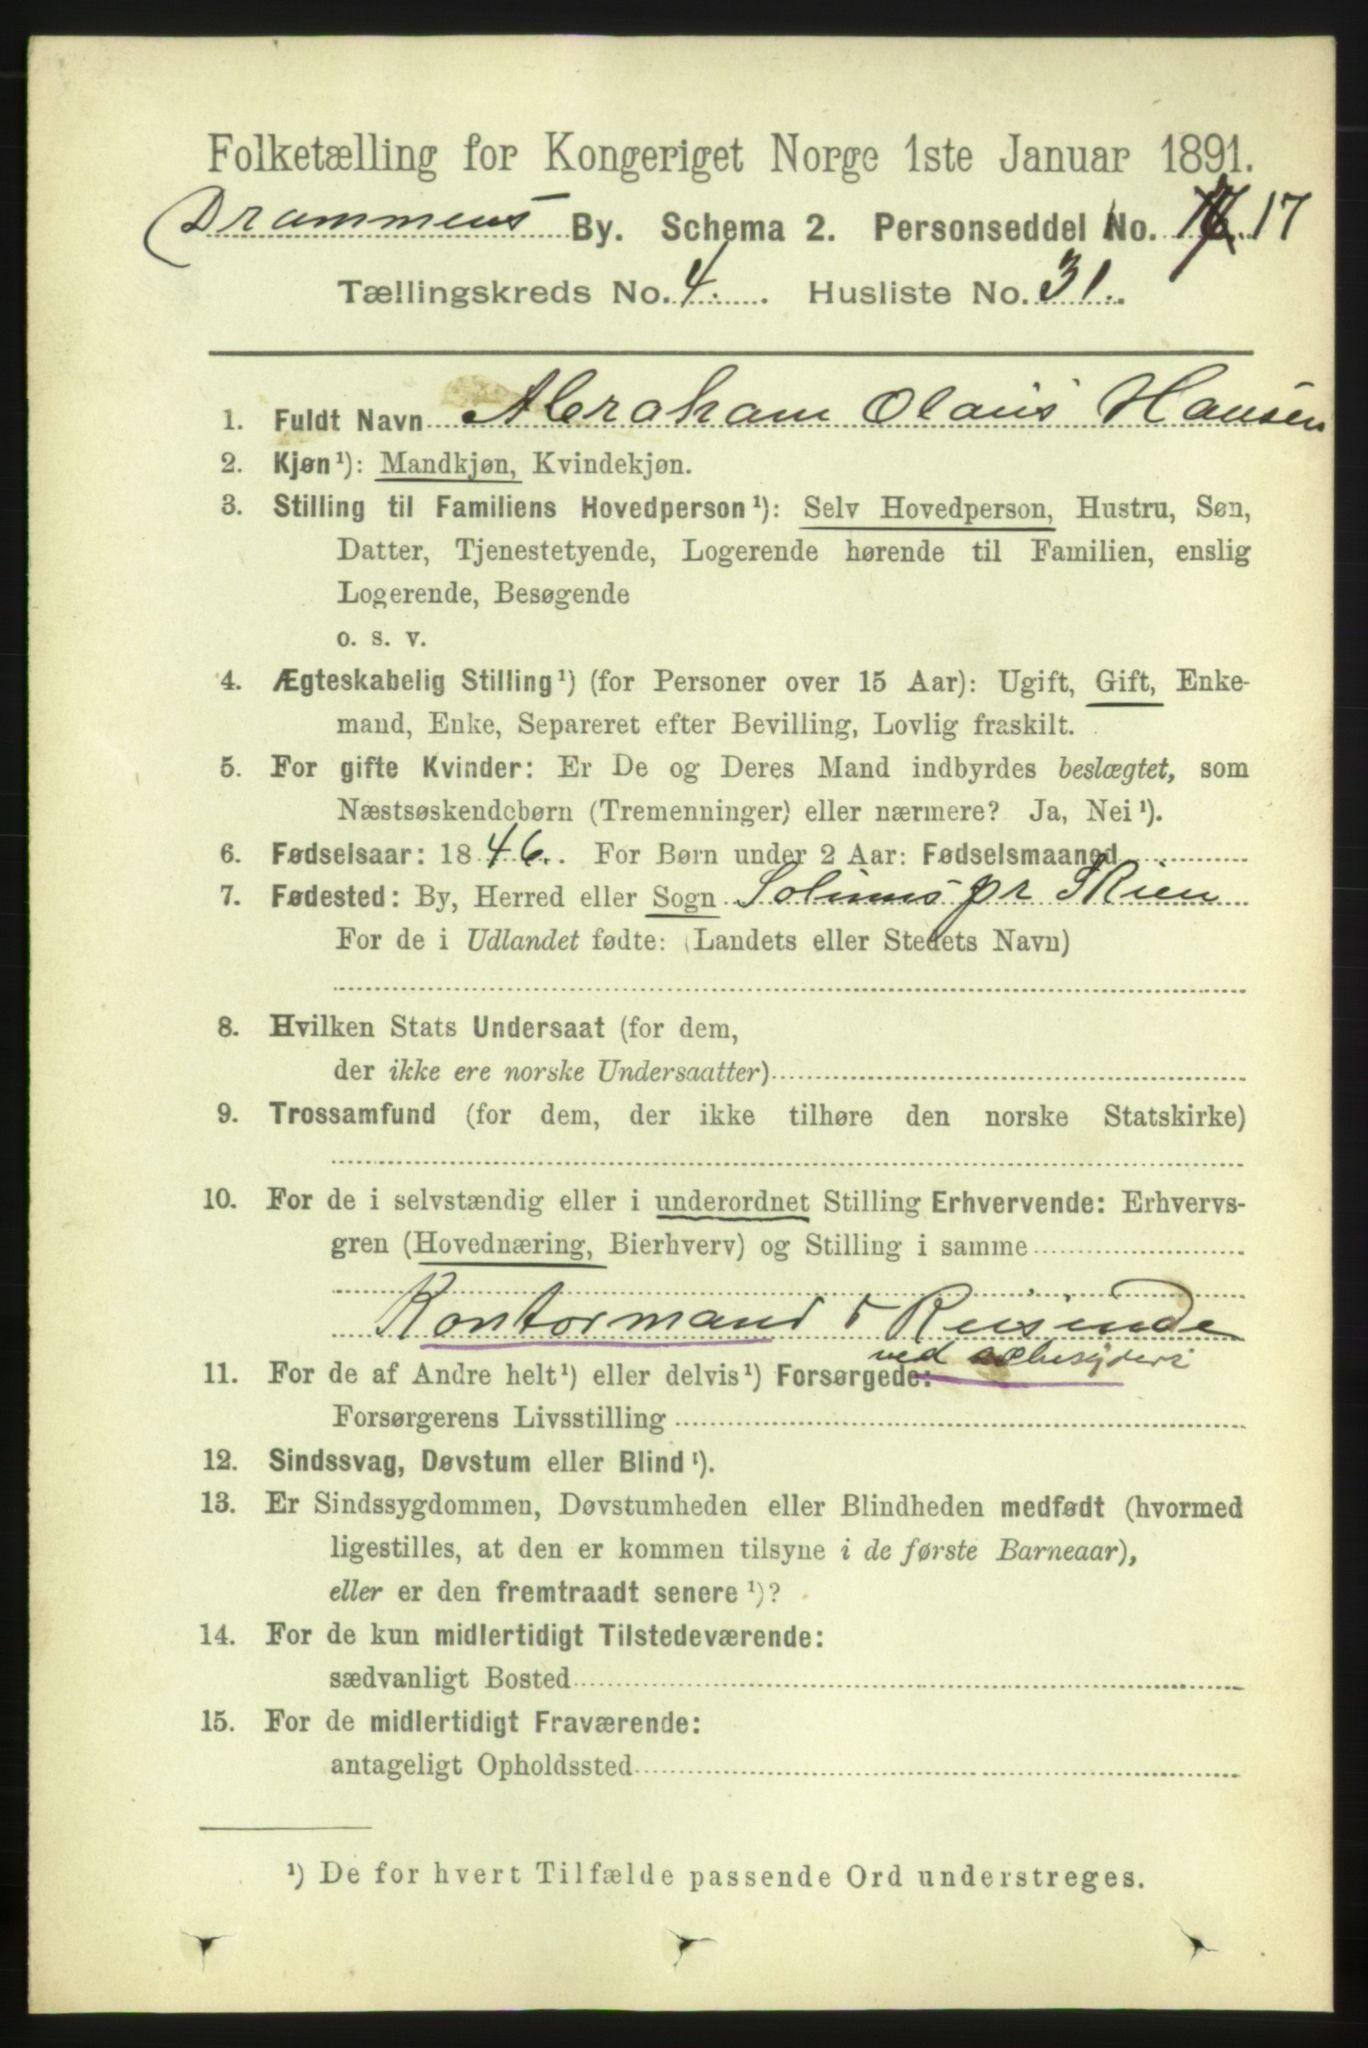 Folketælling for Kongeriget Norge 1ste Januar 1891.
Drammens By. Schema 2. Personseddel No. 17
Tællingskreds No. 4. Husliste No. 31.
1. Fuldt Navn Abraham Olaus Hansen
2. Kjøn¹): Mandkjøn, Kvindekjøn.
3. Stilling til Familiens Hovedperson¹): Selv Hovedperson, Hustru, Søn,
Datter, Tjenestetyende, Logerende hørende til Familien, enslig
Logerende, Besøgende
o. s. v.
4. Ægteskabelig Stilling¹) (for Personer over 15 Aar): Ugift, Gift, Enke-
mand, Enke, Separeret efter Bevilling, Lovlig fraskilt.
5. For gifte Kvinder: Er De og Deres Mand indbyrdes beslægtet, som
Næstsøskendebørn (Tremenninger) eller nærmere? Ja, Nei¹).
6. Fødselsaar: 1846. For Børn under 2 Aar: Fødselsmaaned
7. Fødested: By, Herred eller Sogn Solums pr Skien
For de i Udlandet fødte: (Landets eller Stedets Navn)
8. Hvilken Stats Undersaat (for dem,
der ikke ere norske Undersaatter)
9. Trossamfund (for dem, der ikke tilhøre den norske Statskirke)
10. For de i selvstændig eller i underordnet Stilling Erhvervende: Erhvervs-
gren (Hovednæring, Bierhverv) og Stilling i samme
Kontormand & Reisende
ved
11. For de af Andre helt¹) eller delvis¹) Forsørgede:
Forsørgerens Livsstilling
12. Sindssvag, Døvstum eller Blind¹).
13. Er Sindssygdommen, Døvstumheden eller Blindheden medfødt (hvormed
ligestilles, at den er kommen tilsyne i de første Barneaar),
eller er den fremtraadt senere¹)?
14. For de kun midlertidigt Tilstedeværende:
sædvanligt Bosted
15. For de midlertidigt Fraværende:
antageligt Opholdssted
¹) De for hvert Tilfælde passende Ord understreges.